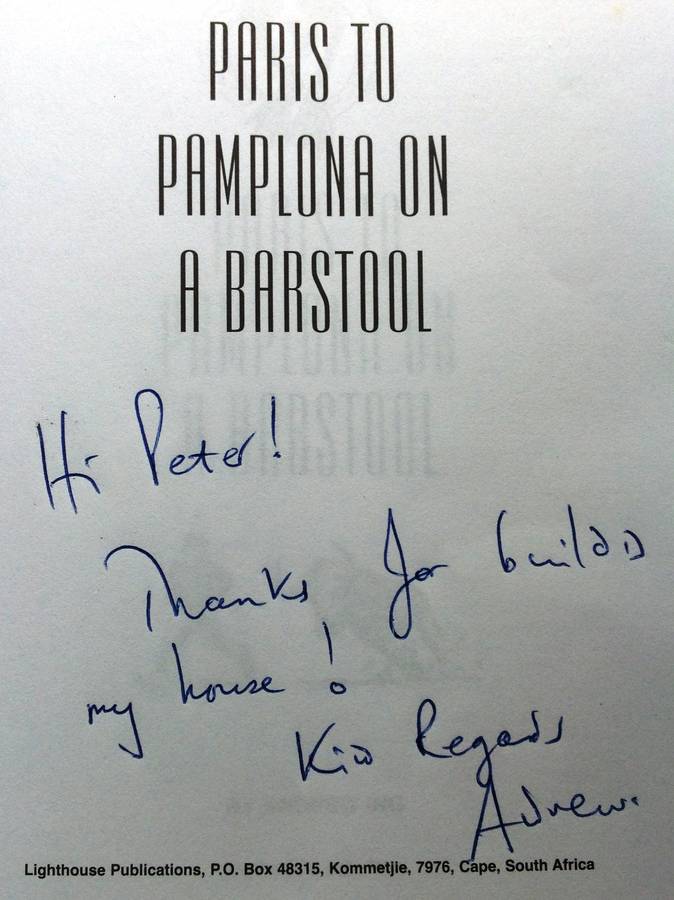 PARIS TO
PAMPLONA ON
A BARSTOOL
Hi Peter!
Thanks for building
my house!
Kind Regards
Andrew.
Lighthouse Publications, P.O. Box 48315, Kommetjie, 7976, Cape, South Africa